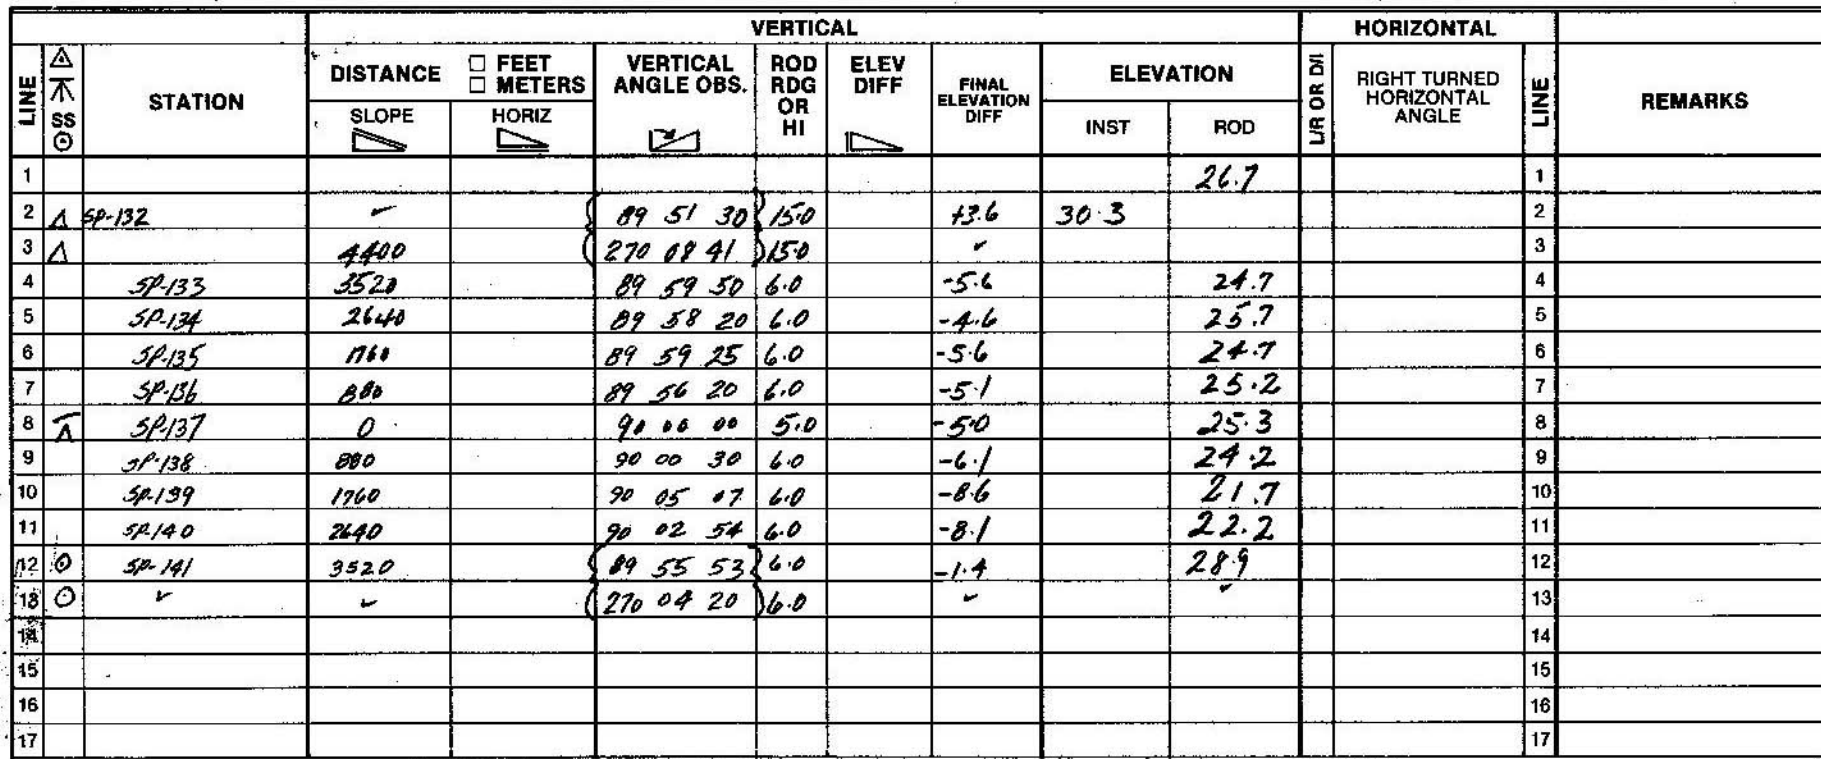 VERTICAL HORIZONTAL
LINE SS STATION DISTANCE □ FEET □ METERS VERTICAL ANGLE OBS. ROD RDG OR HI ELEV DIFF FINAL ELEVATION DIFF ELEVATION L/R OR D/I RIGHT TURNED HORIZONTAL ANGLE LINE REMARKS
SLOPE HORIZ INST ROD
1 26.7 1
2 SP-132 ✓ 89 51 30 15.0 +3.6 30.3 2
3 4400 270 08 41 15.0 ✓ 3
4 SP-133 3520 89 59 50 6.0 -5.6 24.7 4
5 SP-134 2640 89 58 20 6.0 -4.6 25.7 5
6 SP-135 1760 89 59 25 6.0 -5.6 24.7 6
7 SP-136 880 89 56 20 6.0 -5.1 25.2 7
8 SP-137 0 90 00 00 5.0 -5.0 25.3 8
9 SP-138 880 90 00 30 6.0 -6.1 24.2 9
10 SP-139 1760 90 05 07 6.0 -8.6 21.7 10
11 SP-140 2640 90 02 54 6.0 -8.1 22.2 11
12 SP-141 3520 89 55 53 6.0 -1.4 28.9 12
13 ✓ ✓ 270 04 20 6.0 ✓ ✓ 13
14 14
15 15
16 16
17 17